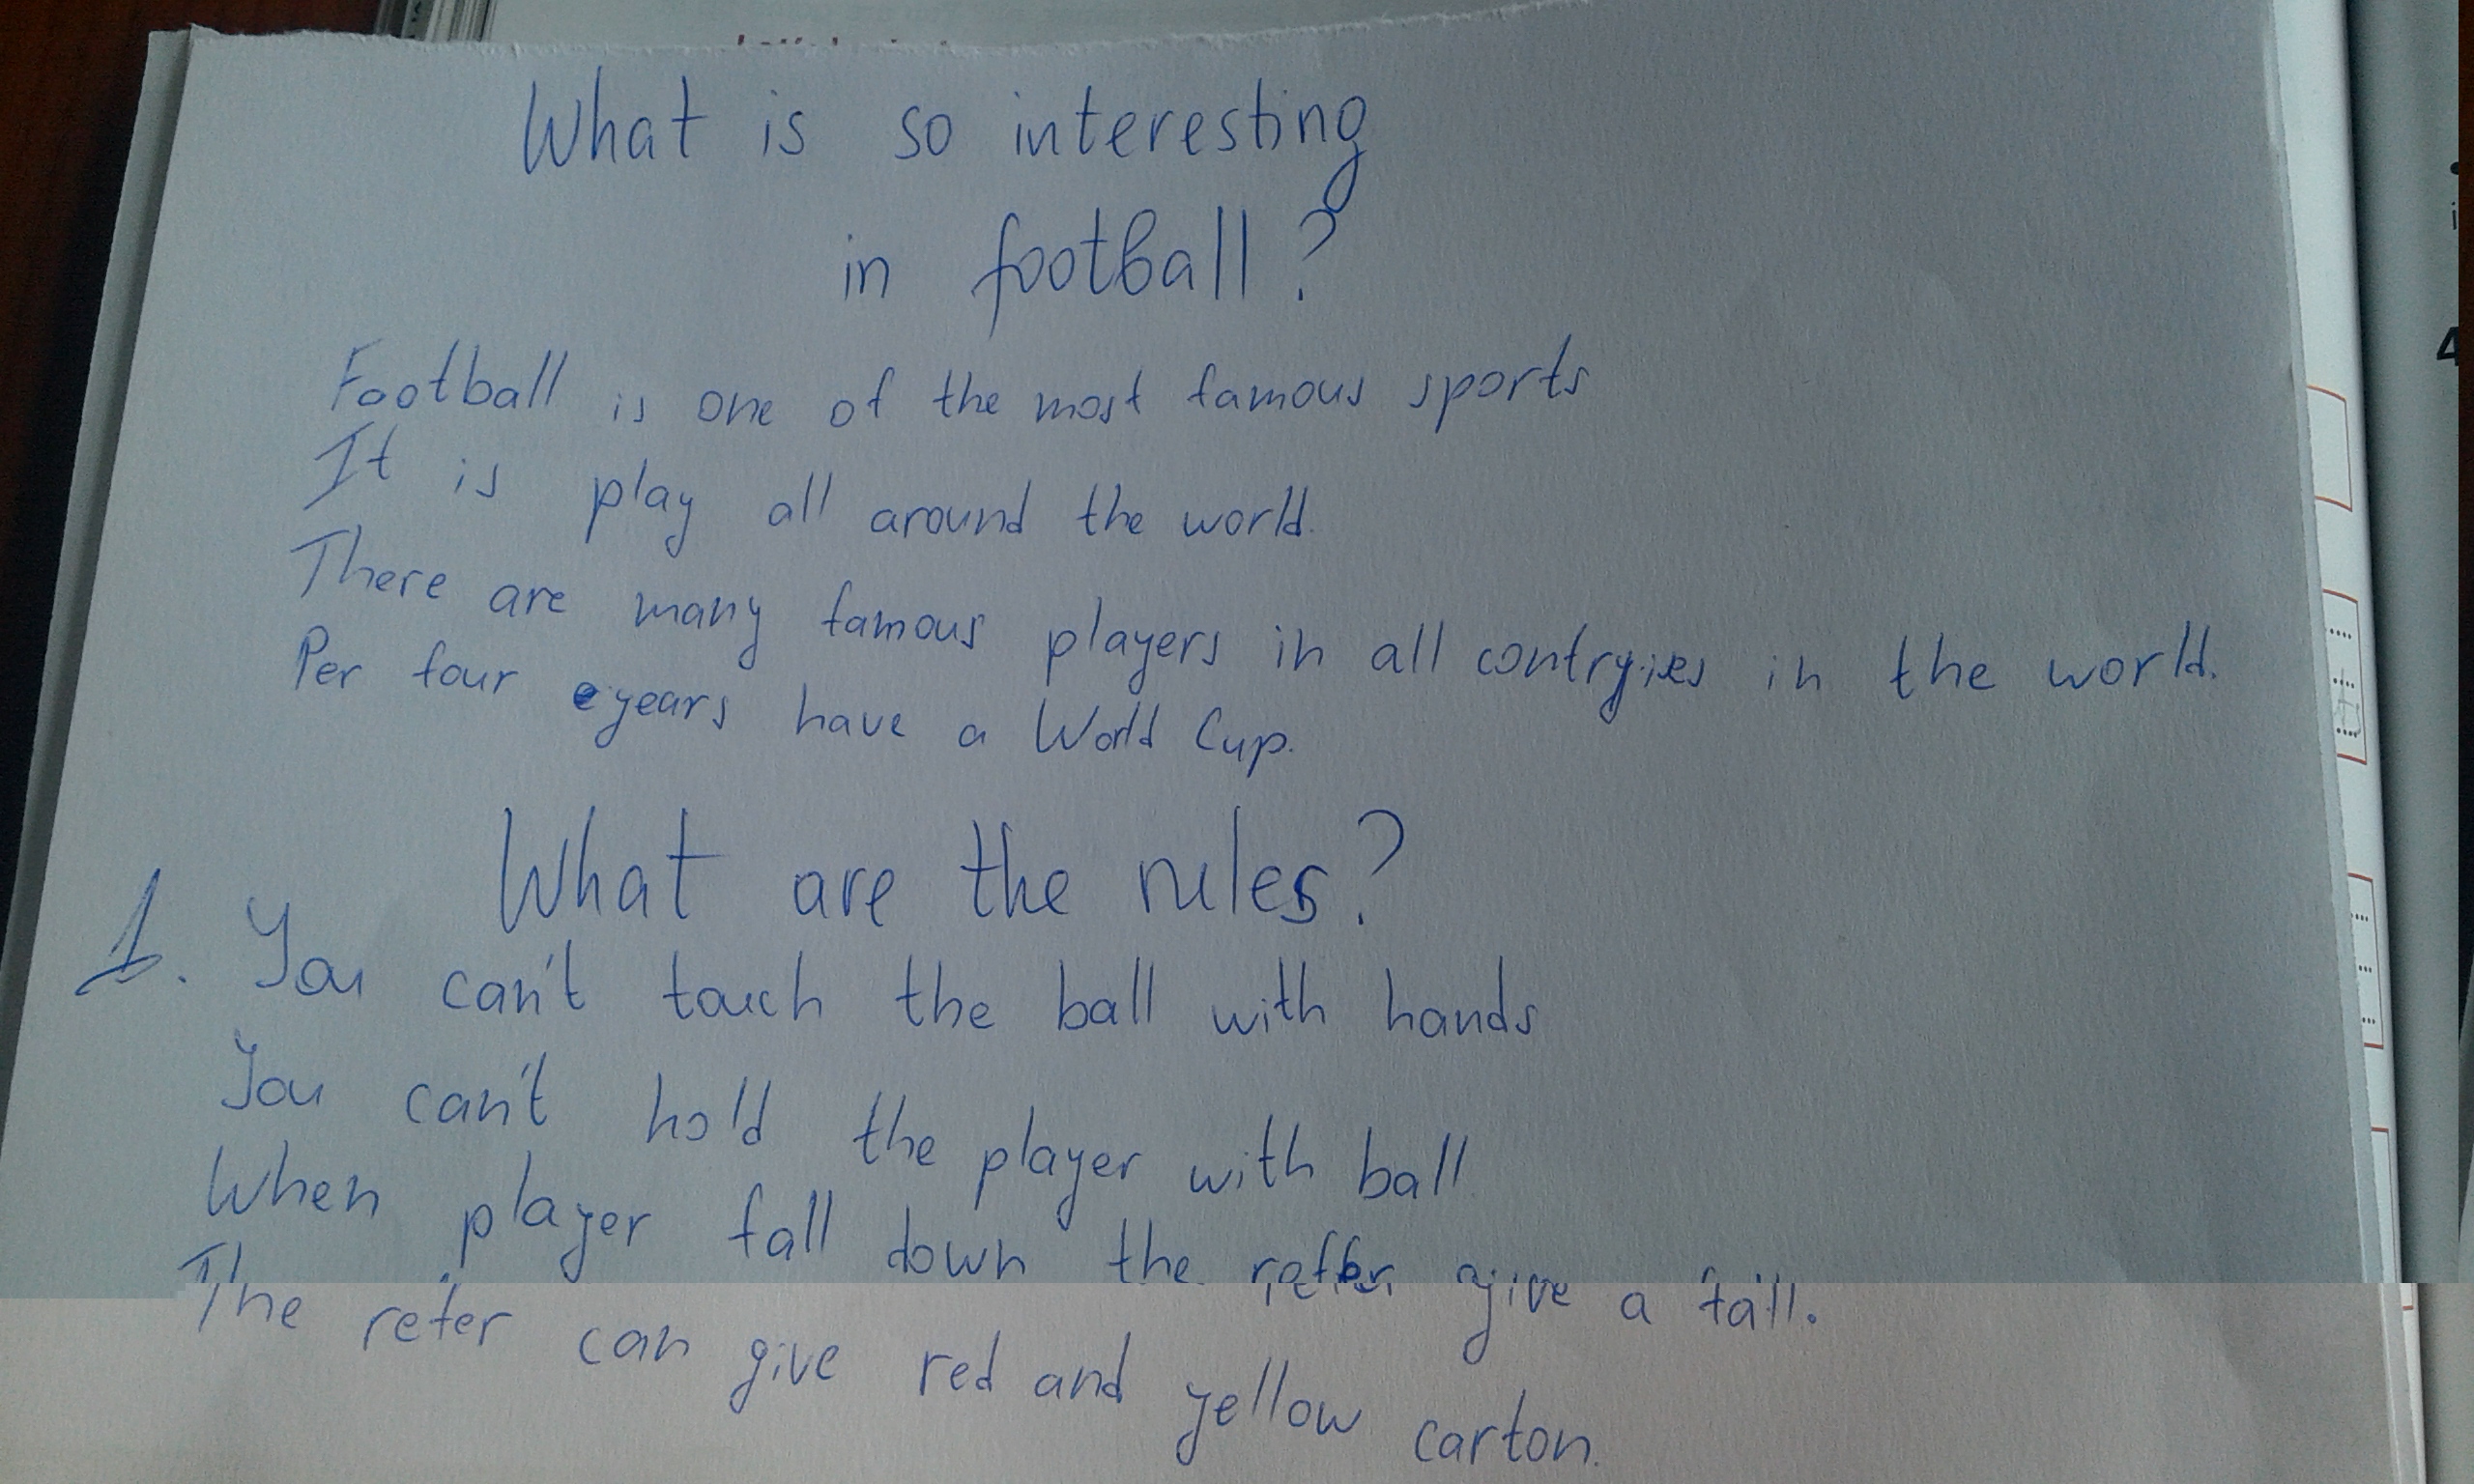 What is so interesting
in football?
Football is one of the most famous sports
It is play all around the world.
There are many famous players in all contryies in the world.
Per four years have a World Cup.
What are the rules?
1. You can't touch the ball with hands
You can't hold the player with ball
When player fall down the reffer give a fall.
The refer can give red and yellow carton.
4